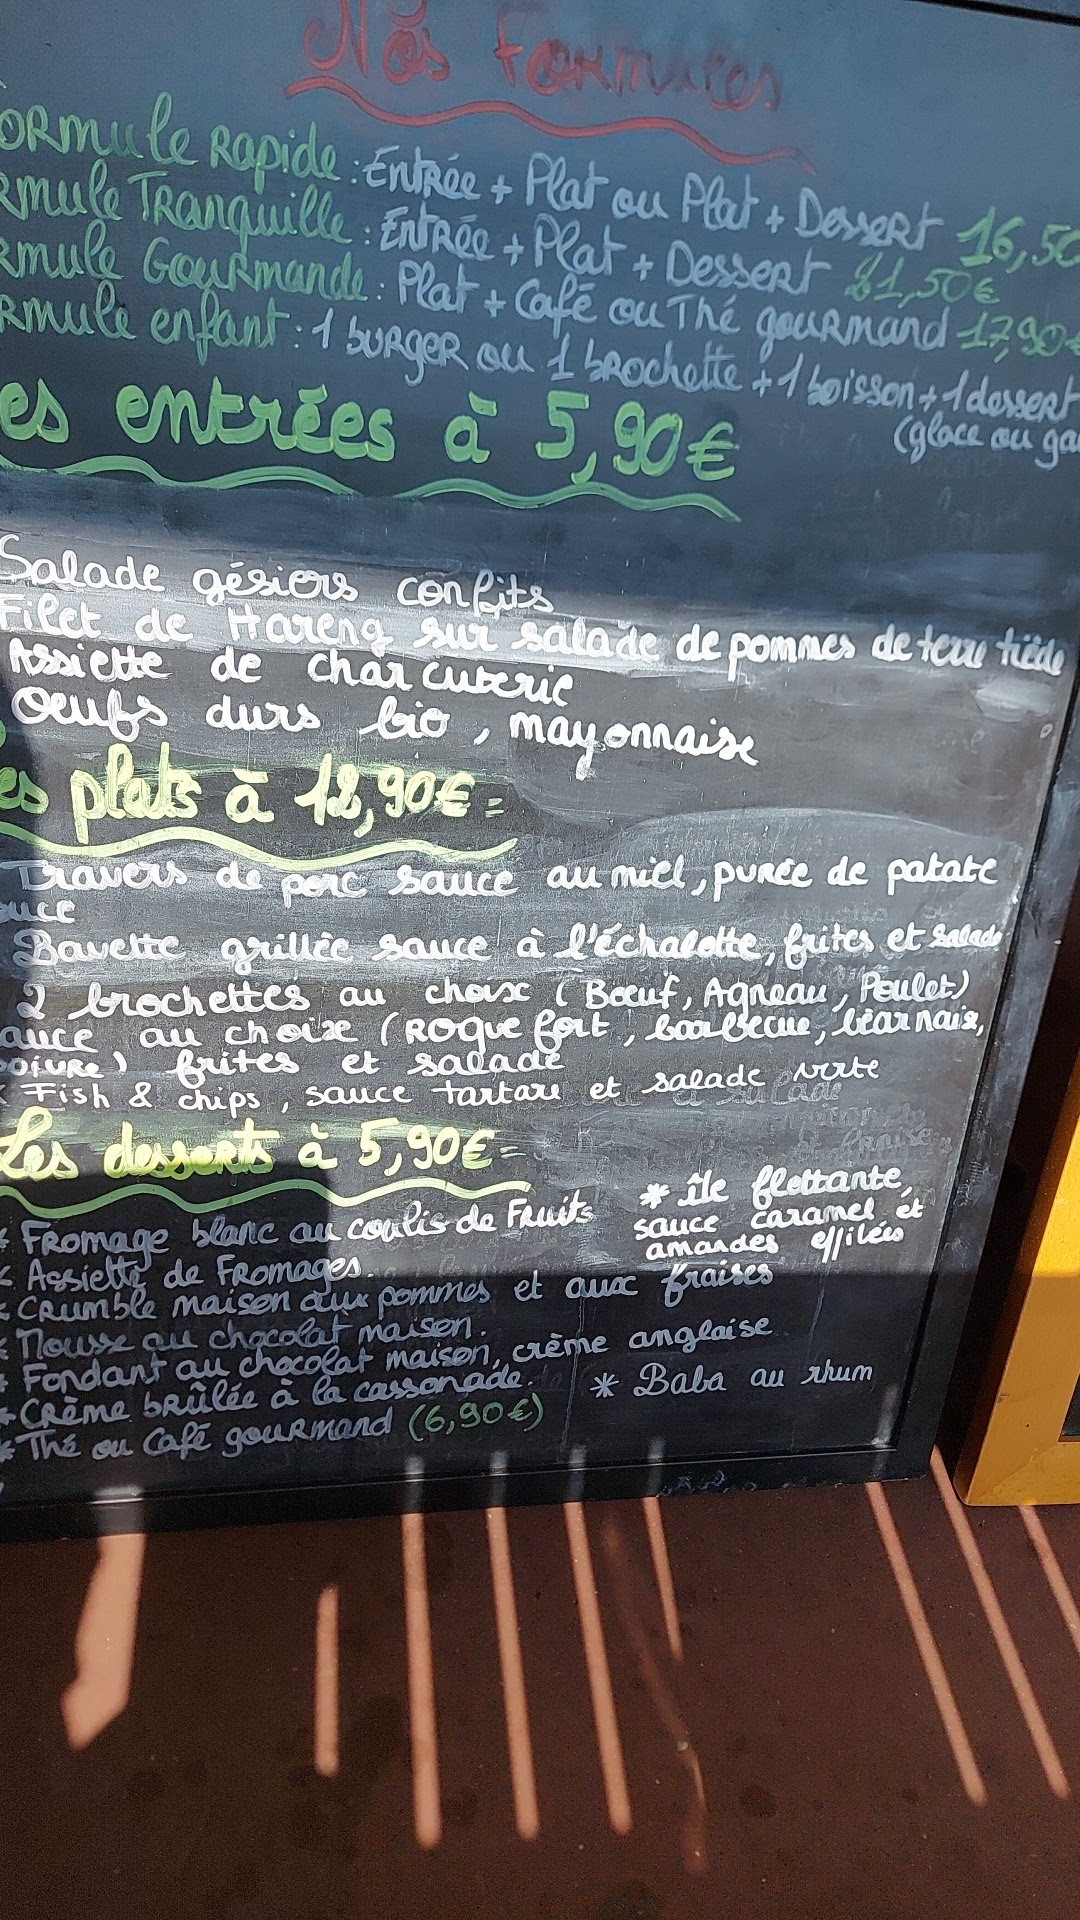 Nos Formules
ormule Rapide : Entrée + Plat ou Plat + Dessert 16,50
rmule Tranquille : Entrée + Plat + Dessert 21,50€
rmule Gourmande : Plat + Café ou Thé gourmand 17,90€
rmule enfant : 1 burger ou 1 brochette + 1 boisson + 1 dessert
(glace ou ga
es entrées à 5,90€
Salade gésiers confits
Filet de Hareng sur salade de pommes de terre tiède
Assiette de charcuterie
Oeufs durs bio, mayonnaise
es plats à 12,90€ =
Travers de porc sauce au miel, purée de patate
ouce
Bavette grillée sauce à l'échalotte, frites et salade
2 brochettes au choix (Bœuf, Agneau, Poulet)
auce au choix (Roquefort, barbecue, béarnaise,
poivre) frites et salade
* Fish & chips, sauce tartare et salade verte
Les desserts à 5,90€ =
* Fromage blanc au coulis de Fruits
* île flottante,
sauce caramel et
amandes effilées
* Assiette de Fromages.
* Crumble maison aux pommes et aux fraises
* Mousse au chocolat maison.
* Fondant au chocolat maison, crème anglaise
* Crème brûlée à la cassonade.
* Baba au rhum
* Thé ou Café gourmand (6,90€)